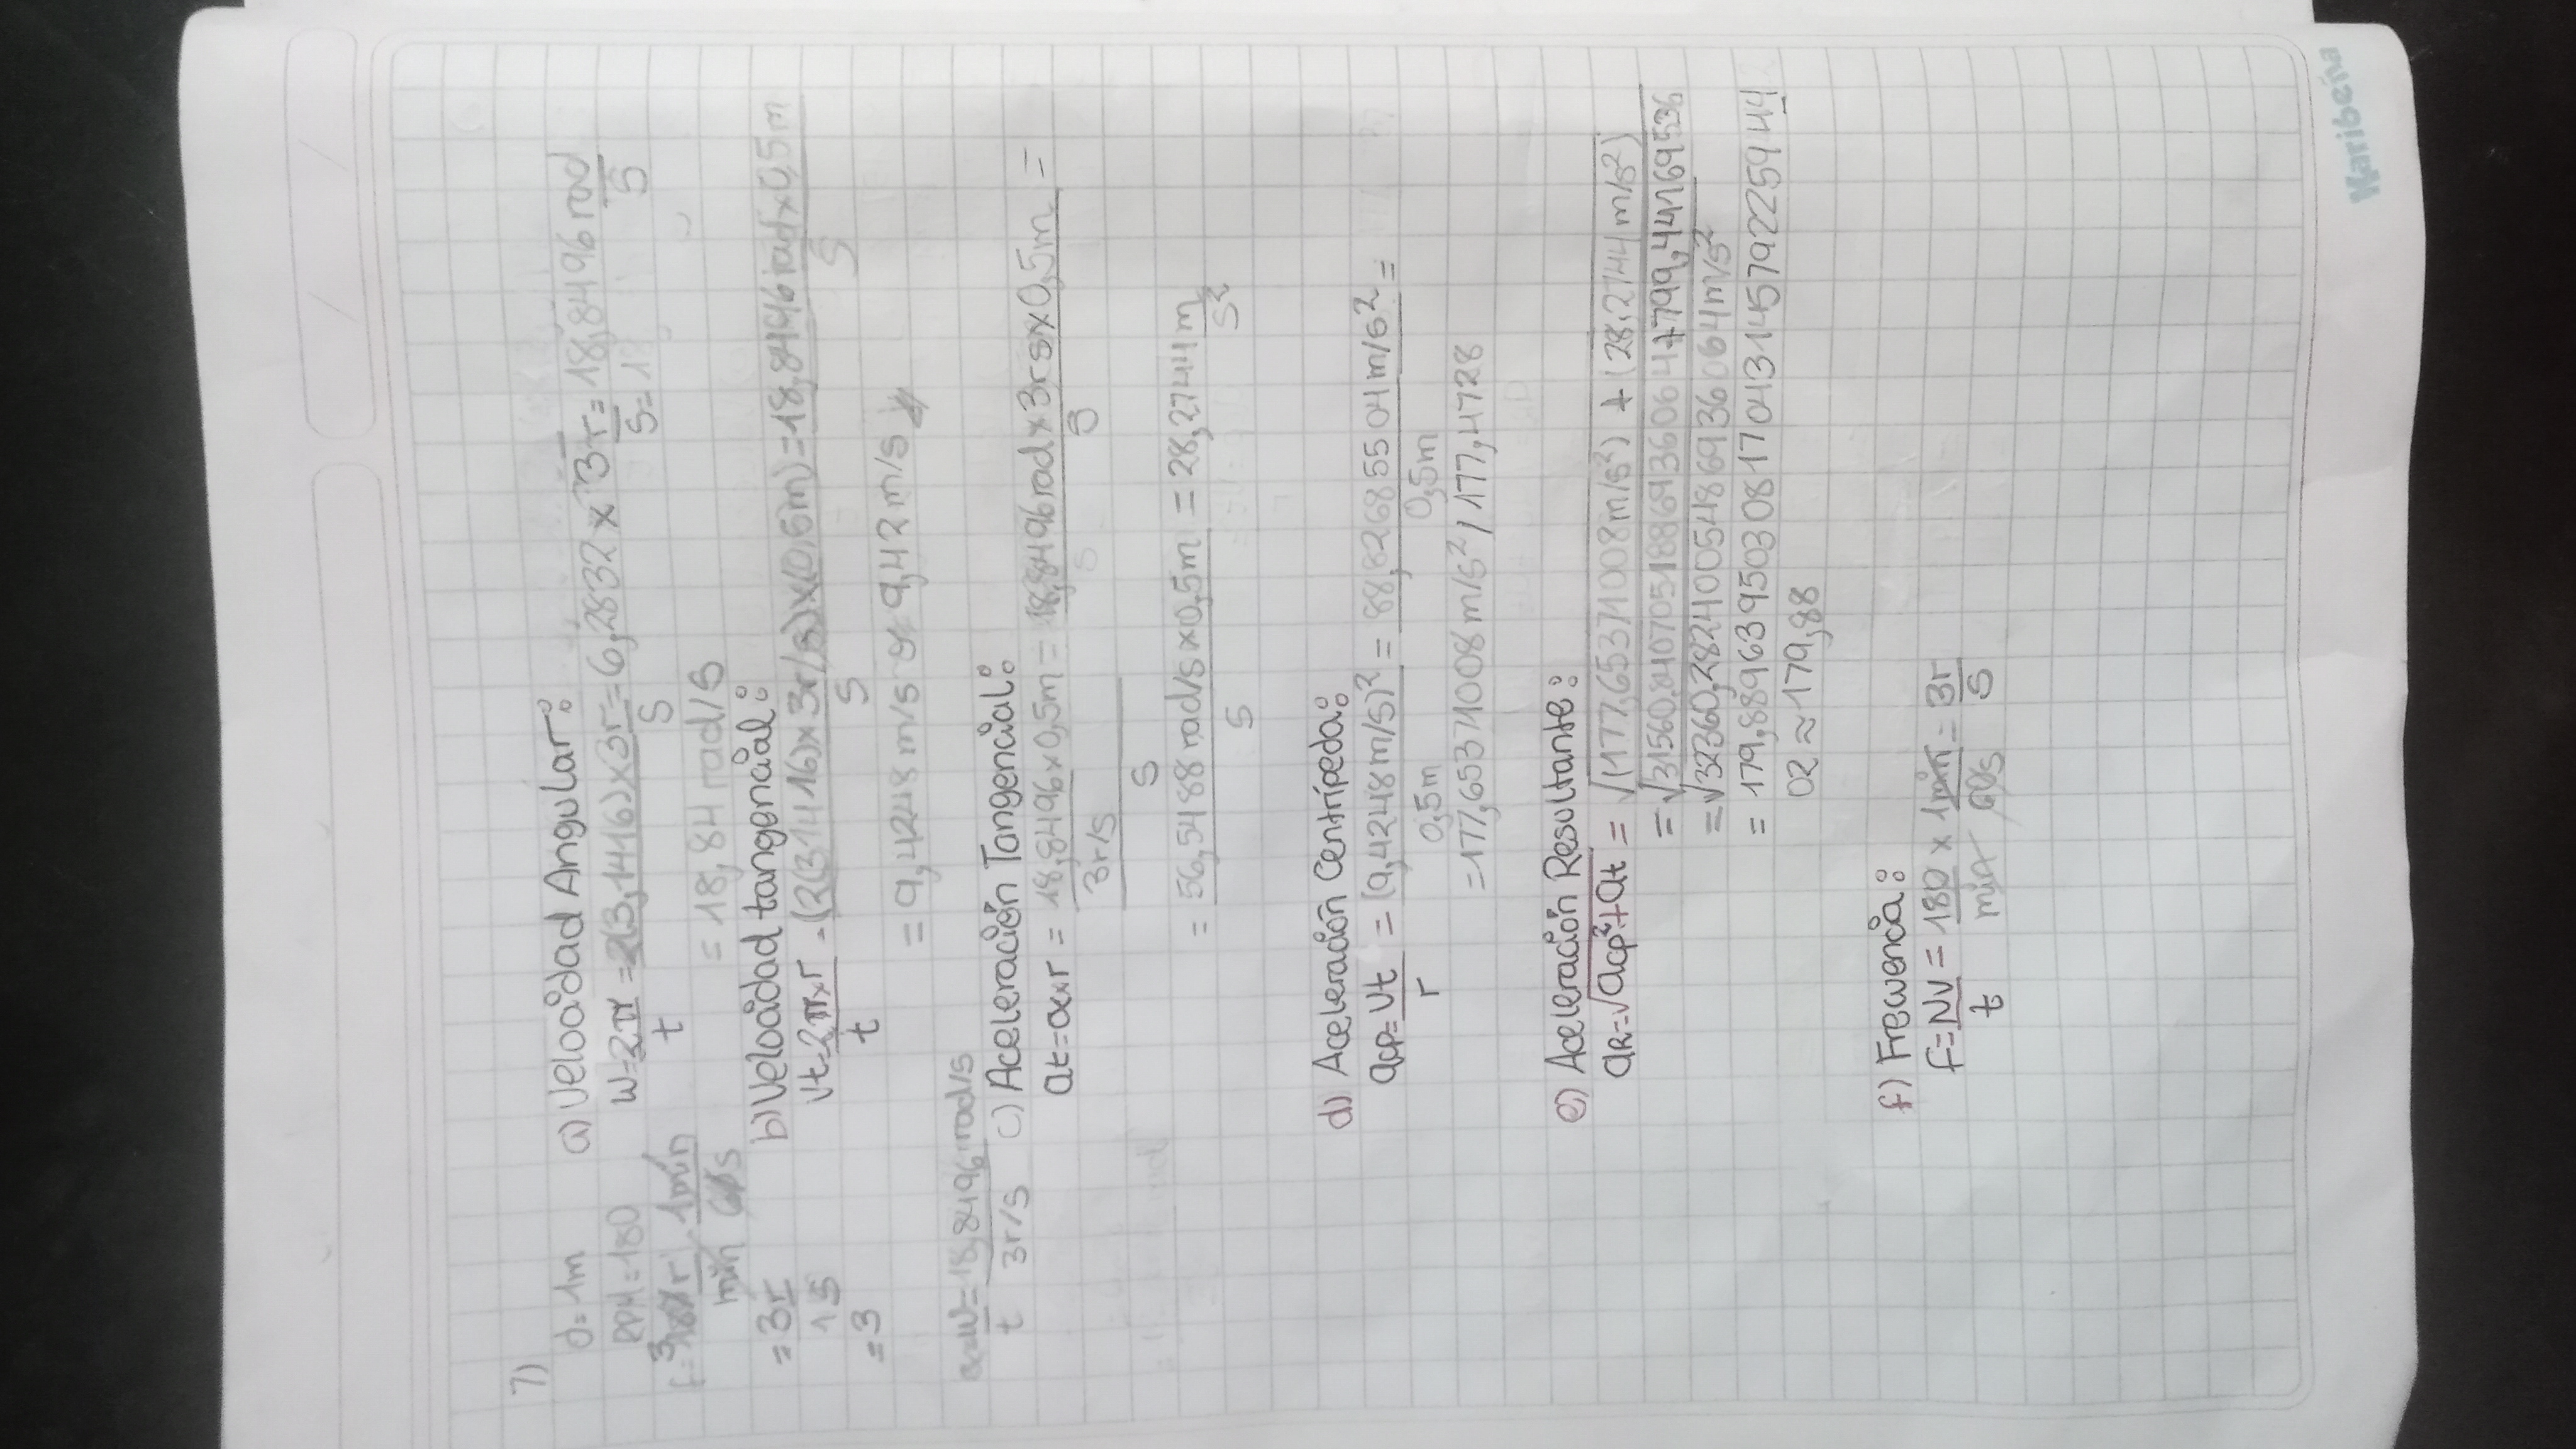 7)
d=1m
RPM=180
f=180r/min 1min/60s
=3r/1s
=3
a) Velocidad Angular:
W=2π/t =2(3,1416)x3r/s=6,2832 x 3r/s=18,8496 rad/s
=18,84 rad/s
b) Velocidad tangencial:
Vt=2πxr/t =(2(3,1416)x3r/s)x(0,5m)/s=18,8496 rad x 0,5m/s
=9,4248 m/s 9,42 m/s
α=W/t=18,8496 rad/s/3r/s
c) Aceleración Tangencial:
at=αxr=18,8496x0,5m/3r/s=18,8496 rad x 3rs x 0,5m/s=
=56,5488 rad/s x 0,5m/s=28,2744 m/s²
d) Aceleración Centrípeda:
acp=Vt/r=(9,4248 m/s)²/0,5m=88,82685504 m/s²/0,5m=
=177,65371008 m/s² / 177,4728
e) Aceleración Resultante:
aR=√acp²+at=√(177,65371008 m/s²)+(28,2744 m/s²)
=√31560,8407051886936064+799,44169536
=√32360,28240054869360 64 m/s²
=179,8896395030817043145792259 44
02≈179,88
f) Frecuencia:
F=Nv/t=180/min x 1min/60s=3r/s
Maribeína